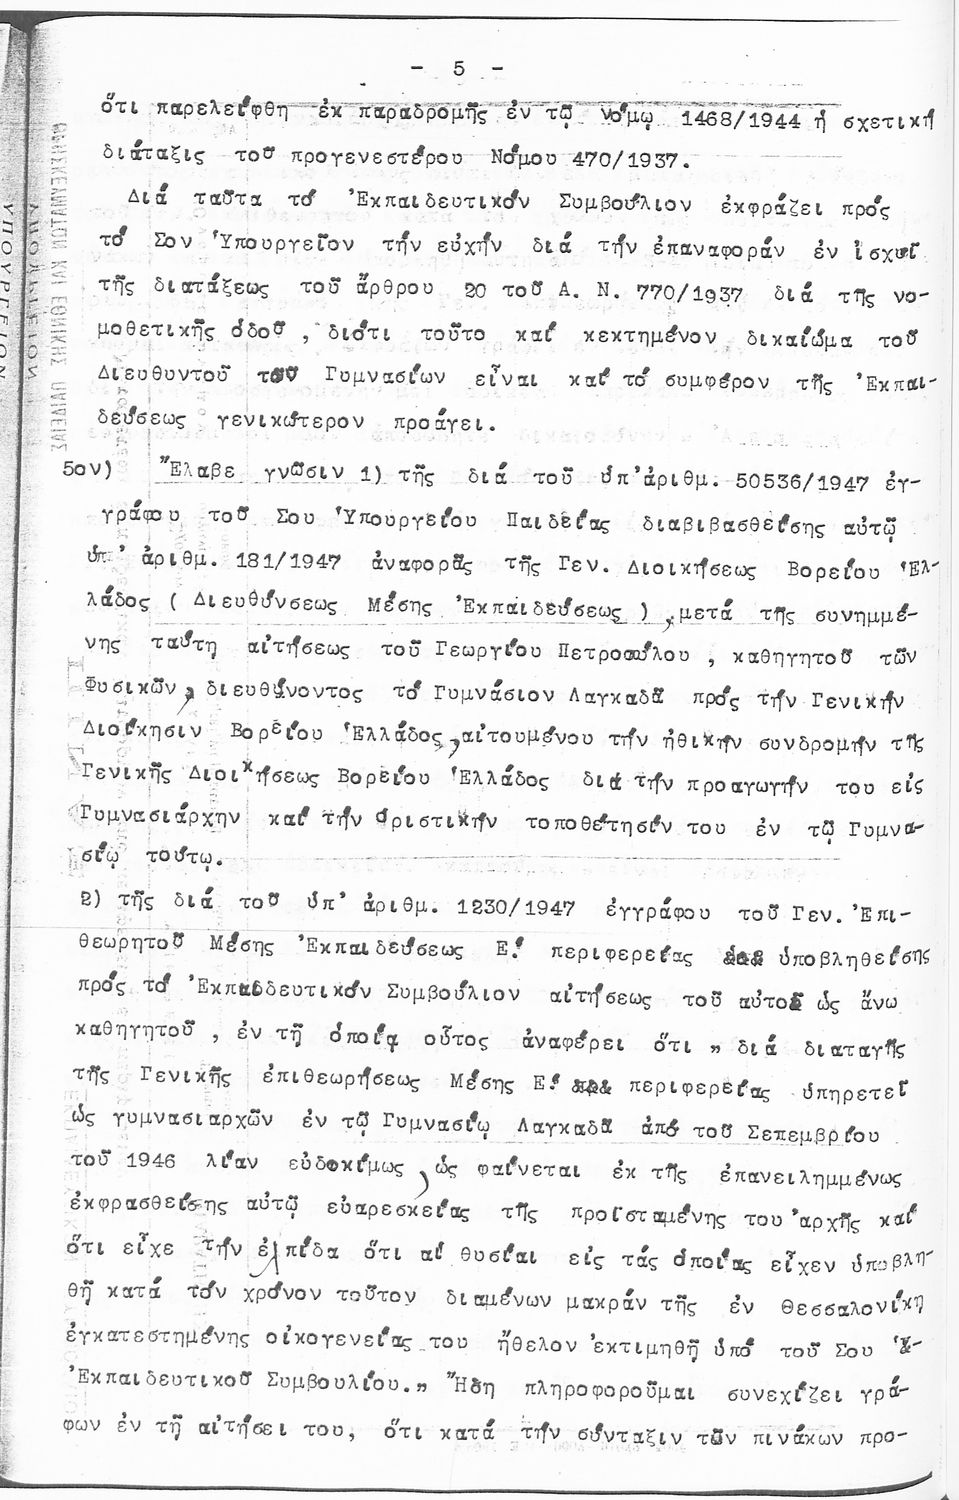 - 5 -
ὅτι παρελείφθη ἐκ παραδρομῆς ἐν τῷ Νόμῳ 1468/1944 ἡ σχετική
διάταξις τοῦ προγενεστέρου Νόμου 470/1937.
Διά ταῦτα τό Ἐκπαιδευτικόν Συμβούλιον ἐκφράζει πρός
τό Σον Ὑπουργεῖον τήν εὐχήν διά τήν ἐπαναφοράν ἐν ἰσχυεῖ
τῆς διατάξεως τοῦ ἄρθρου 20 τοῦ Α. Ν. 770/1937 διά τῆς νο-
μοθετικῆς ὁδοῦ , διότι τοῦτο καί κεκτημένον δικαίωμα τοῦ
Διευθυντοῦ τῶν Γυμνασίων εἶναι καί τό συμφέρον τῆς Ἐκπαι-
δεύσεως γενικώτερον προάγει.
5ον) Ἔλαβε γνῶσιν 1) τῆς διά τοῦ ὑπ'ἀριθμ. 50536/1947 ἐγ-
γράφου τοῦ Σου Ὑπουργείου Παιδείας διαβιβασθείσης αὐτῷ
ὑπ' ἀριθμ. 181/1947 ἀναφορᾶς τῆς Γεν. Διοικήσεως Βορείου Ἑλ-
λάδος ( Διευθύνσεως Μέσης Ἐκπαιδεύσεως ) , μετά τῆς συνημμέ-
νης ταύτῃ αἰτήσεως τοῦ Γεωργίου Πετροπούλου , καθηγητοῦ τῶν
Φυσικῶν, διευθύνοντος τό Γυμνάσιον Λαγκαδᾶ πρός τήν Γενικήν
Διοίκησιν Βορείου Ἑλλάδος, αἰτουμένου τήν ἠθικήν συνδρομήν τῆς
Γενικῆς Διοικήσεως Βορείου Ἑλλάδος διά τήν προαγωγήν του εἰς
Γυμνασιάρχην καί τήν ὁριστικήν τοποθέτησίν του ἐν τῷ Γυμνα-
σίῳ τούτῳ.
2) τῆς διά τοῦ ὑπ' ἀριθμ. 1230/1947 ἐγγράφου τοῦ Γεν. Ἐπι-
θεωρητοῦ Μέσης Ἐκπαιδεύσεως Ε! περιφερείας ὑποβληθείσης
πρός τό Ἐκπαιδευτικόν Συμβούλιον αἰτήσεως τοῦ αὐτοῦ ὡς ἄνω
καθηγητοῦ , ἐν τῇ ὁποίᾳ οὗτος ἀναφέρει ὅτι „ διά διαταγῆς
τῆς Γενικῆς ἐπιθεωρήσεως Μέσης Ε! περιφερείας ὑπηρετεῖ
ὡς γυμνασιαρχῶν ἐν τῷ Γυμνασίῳ Λαγκαδᾶ ἀπό τοῦ Σεπεμβρίου
τοῦ 1946 λίαν εὐδοκίμως , ὡς φαίνεται ἐκ τῆς ἐπανειλημμένως
ἐκφρασθείσης αὐτῷ εὐαρεσκείας τῆς προϊσταμένης του ἀρχῆς καί
ὅτι εἶχε τήν ἐλπίδα ὅτι αἱ θυσίαι εἰς τάς ὁποίας εἶχεν ὑποβλη-
θῆ κατά τόν χρόνον τοῦτον διαμένων μακράν τῆς ἐν Θεσσαλονίκῃ
ἐγκατεστημένης οἰκογενείας του ἤθελον ἐκτιμηθῆ ὑπό τοῦ Σου
Ἐκπαιδευτικοῦ Συμβουλίου.„ Ἤδη πληροφοροῦμαι συνεχίζει γρά-
φων ἐν τῇ αἰτήσει του, ὅτι κατά τήν σύνταξιν τῶν πινάκων προ-